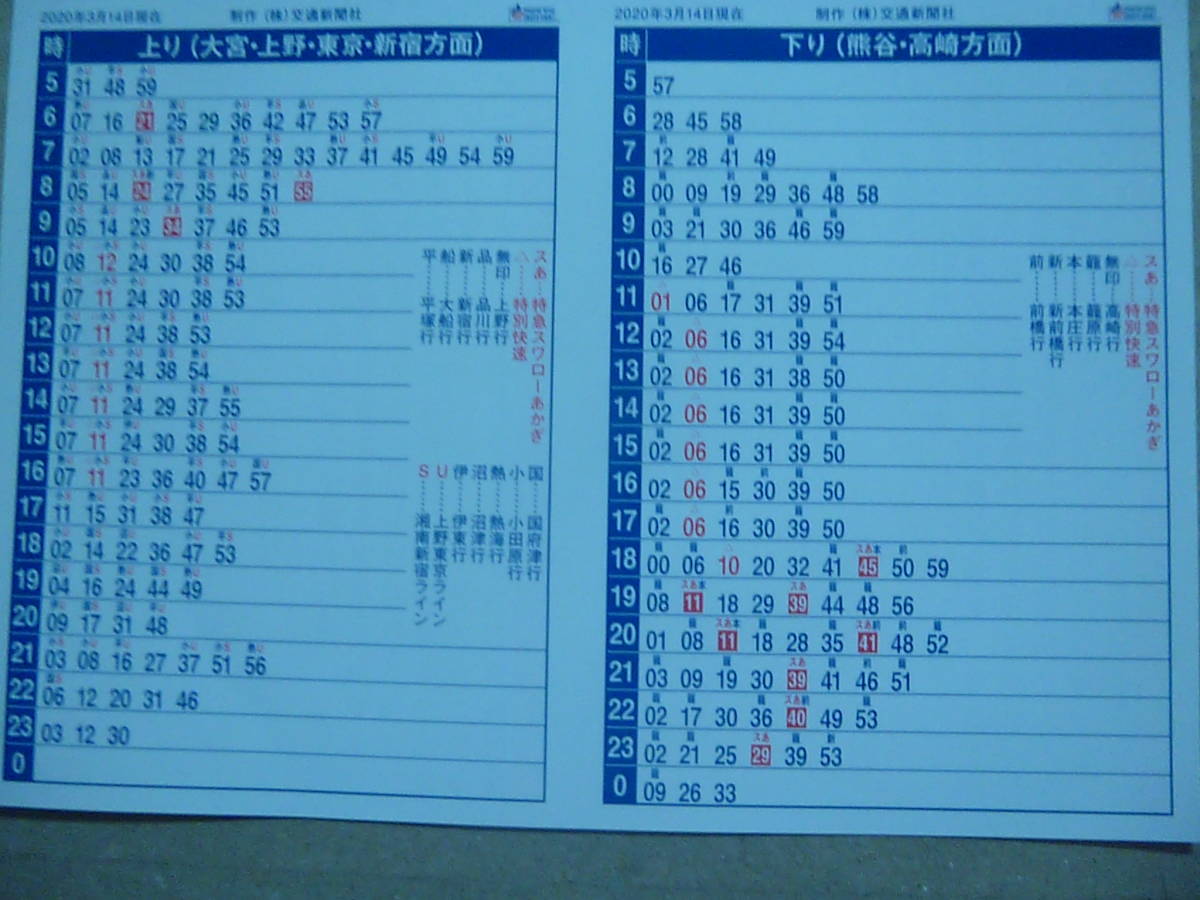 2020年3月14日現在 制作（株）交通新聞社
時 上り（大宮・上野・東京・新宿方面）
5 31 48 59
6 07 16 21 25 29 36 42 47 53 57
7 02 08 13 17 21 25 29 33 37 41 45 49 54 59
8 05 14 24 27 35 45 51 55
9 05 14 23 34 37 46 53
10 08 12 24 30 38 54
11 07 11 24 30 38 53
12 07 11 24 38 53
13 07 11 24 38 54
14 07 11 24 29 37 55
15 07 11 24 30 38 54
16 07 11 23 36 40 47 57
17 11 15 31 38 47
18 02 14 22 36 47 53
19 04 16 24 44 49
20 09 17 31 48
21 03 08 16 27 37 51 56
22 06 12 20 31 46
23 03 12 30
0
スあ…特急スワローあかぎ
△……特別快速
無印……上野行
品……品川行
新……新宿行
船……大船行
平……平塚行
国……国府津行
小……小田原行
熱……熱海行
沼……沼津行
伊……伊東行
U……上野東京ライン
S……湘南新宿ライン
2020年3月14日現在 制作（株）交通新聞社
時 下り（熊谷・高崎方面）
5 57
6 28 45 58
7 12 28 41 49
8 00 09 19 29 36 48 58
9 03 21 30 36 46 59
10 16 27 46
11 01 06 17 31 39 51
12 02 06 16 31 39 54
13 02 06 16 31 38 50
14 02 06 16 31 39 50
15 02 06 16 31 39 50
16 02 06 15 30 39 50
17 02 06 16 30 39 50
18 00 06 10 20 32 41 45 50 59
19 08 11 18 29 39 44 48 56
20 01 08 11 18 28 35 41 48 52
21 03 09 19 30 39 41 46 51
22 02 17 30 36 40 49 53
23 02 21 25 29 39 53
0 09 26 33
スあ…特急スワローあかぎ
△……特別快速
無印……高崎行
籠……籠原行
本……本庄行
新……新前橋行
前……前橋行